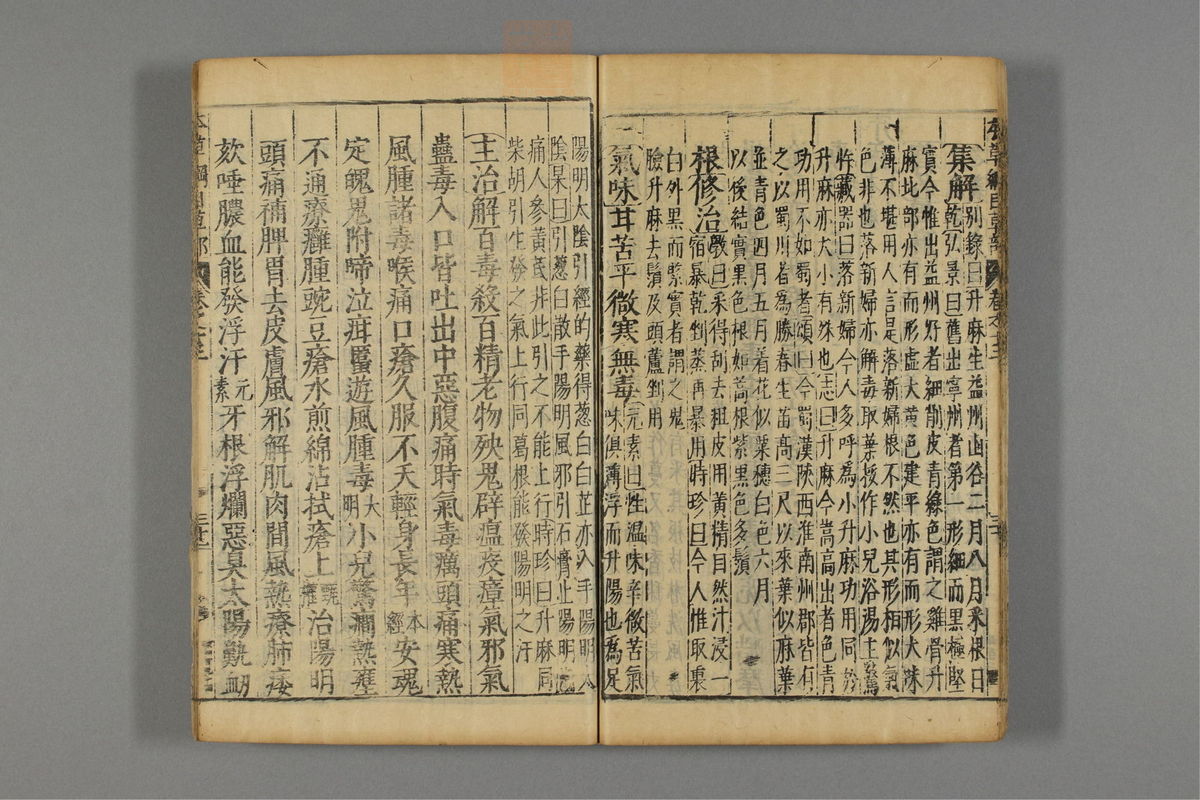 集解別錄曰升麻生益州山谷二月八月采根日
乾弘景曰舊出寧州者第一形細而黑極堅
實今惟出益州好者細削皮青綠色謂之雞骨升
麻北部亦有而形虛大黃色建平亦有而形大味
薄不堪用人言是落新婦根不然也其形相似氣
色非也落新婦亦解毒取葉挼作小兒浴湯主驚
忤藏器曰落新婦今人多呼為小升麻功用同於
升麻亦大小有殊也志曰升麻今嵩高出者色青
功用不如蜀者頌曰今蜀漢陝西淮南州郡皆有
之以蜀川者為勝春生苗高三尺以來葉似麻葉
並青色四月五月着花似粟穗白色六月
以後結實黑色根如蒿根紫黑色多鬚
根修治斅曰采得刮去粗皮用黃精自然汁浸一
宿暴乾剉蒸再暴用時珍曰今人惟取裏
白外黑而緊實者謂之鬼
臉升麻去鬚及頭蘆剉用
氣味甘苦平微寒無毒元素曰性溫味辛微苦氣
味俱薄浮而升陽也為足
陽明太陰引經的藥得葱白白芷亦入手陽明太
陰杲曰引葱白散手陽明風邪引石膏止陽明
痛人參黃芪非此引之不能上行時珍曰升麻同
柴胡引生發之氣上行同葛根能發陽明之汗
主治解百毒殺百精老物殃鬼辟瘟疫瘴氣邪氣
蠱毒入口皆吐出中惡腹痛時氣毒癘頭痛寒熱
風腫諸毒喉痛口瘡久服不夭輕身長年本經安魂
定魄鬼附啼泣疳䘌遊風腫毒大明小兒驚癇熱壅
不通療癰腫豌豆瘡水煎綿沾拭瘡上甄權治陽明
頭痛補脾胃去皮膚風邪解肌肉間風熱療肺痿
欬唾膿血能發浮汗元素牙根浮爛惡臭太陽鼽衄
本草綱目草部